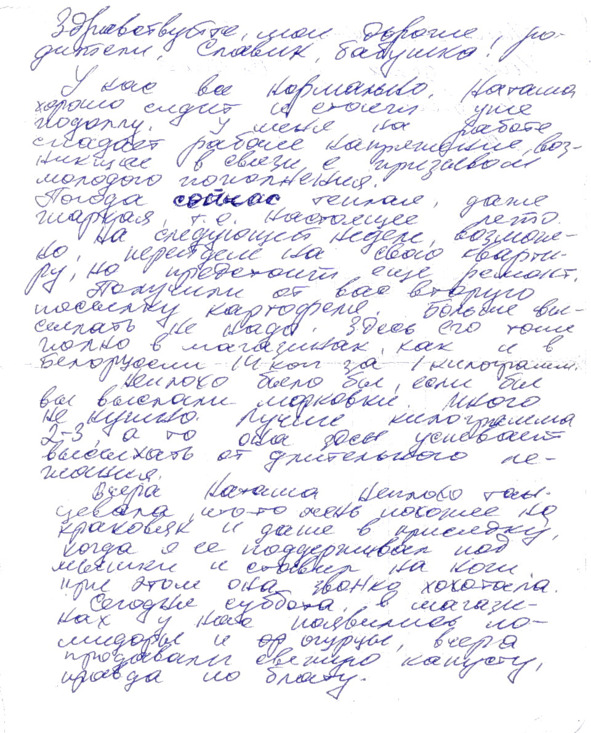 Здравствуйте, мои дорогие, ро-
дители, Славик, бабушка!
У нас все нормально. Наташа
хорошо сидит и стоит уже
подолгу. У меня на работе
спадает рабочее напряжение, воз-
никшее в связи с призывом
молодого пополнения.
Погода сейчас теплая, даже
жаркая, т.е. настоящее лето.
На следующей неделе, возмож-
но, перейдем на свою кварти-
ру, но предстоит еще ремонт.
Получили от вас вторую
посылку картофеля. Больше вы-
сылать не надо. Здесь его тоже
полно в магазинах, как и в
Белоруссии 14 коп за 1 килограмм.
Неплохо было бы, если бы
вы выслали морковки. Много
не нужно. Лучше килограмма
2-3, а то она здесь успевает
высыхать от длительного ле-
жания.
Вчера Наташа неплохо тан-
цевала, что-то очень похожее на
краковяк и даже в присядку,
когда я ее поддерживал под
мышки и ставил на ноги
при этом она звонко хохотала.
Сегодня суббота, в магази-
нах у нас появились по-
мидоры и огурцы, вчера
продавали свежую капусту,
правда по блату.